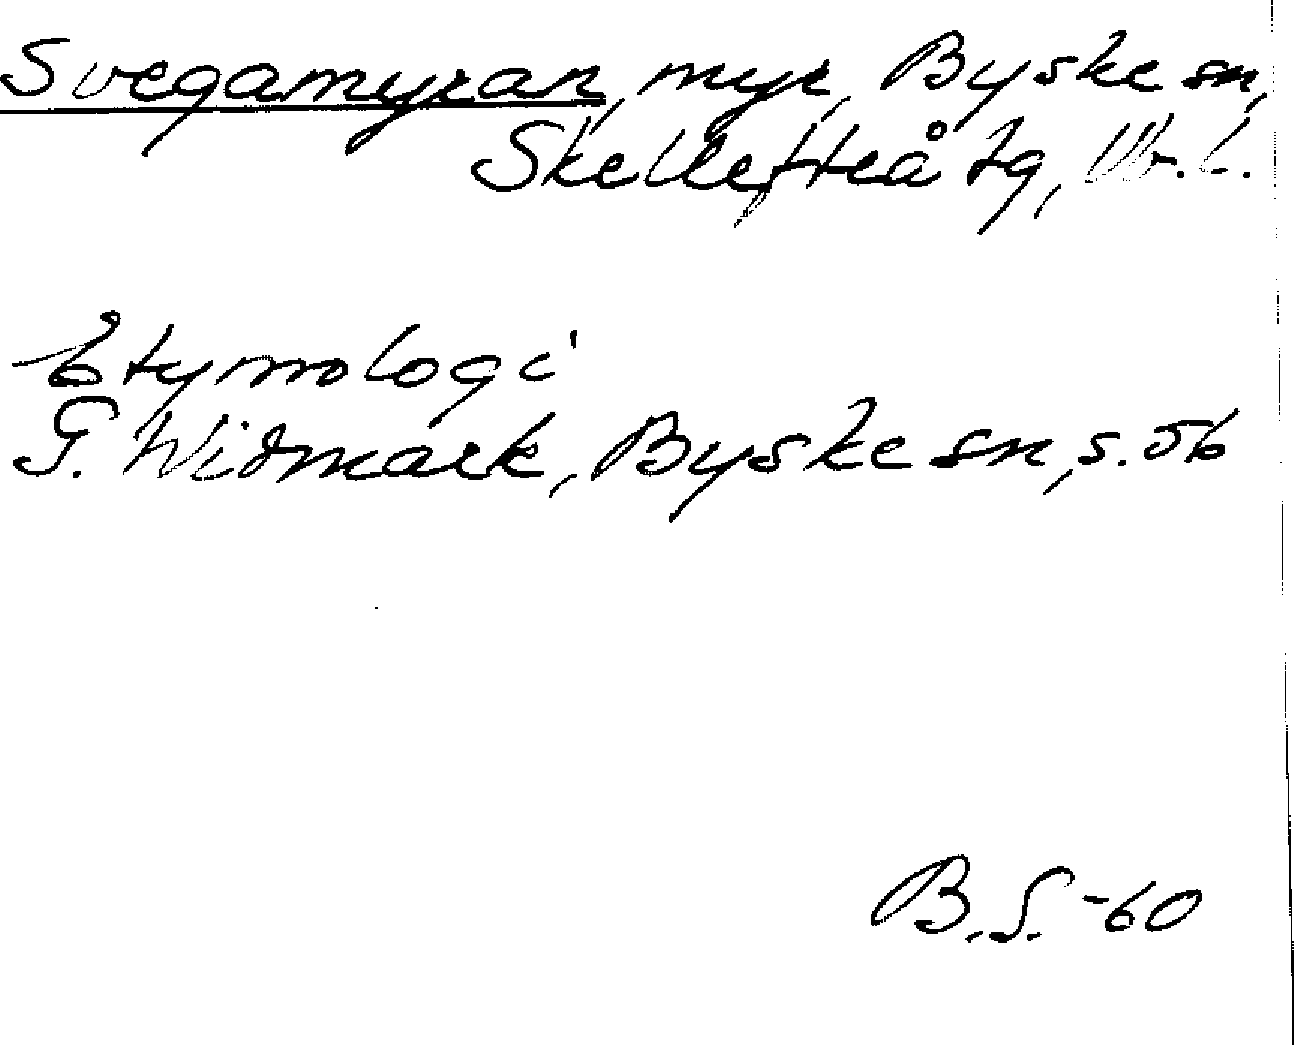 Svegamyran, myr, Byske sn,
Skellefteå tg, Vb.l.
Etymologi
G. Widmark, Byske sn, s. 56
B.S. -60